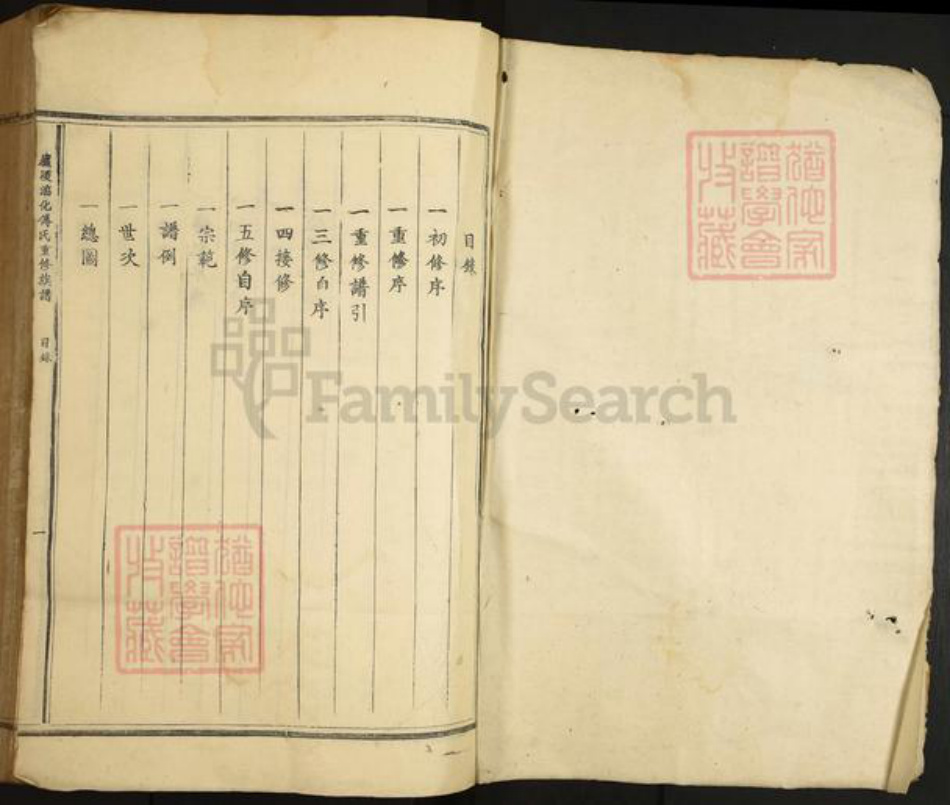 目錄
一初修序
一重修序
一重修譜引
一三修自序
一四接修
一五修自序
一宗範
一譜例
一世次
一總圖
化傅氏重修族譜 目錄 一
猶他家譜學會收藏
猶他家譜學會收藏
FamilySearch